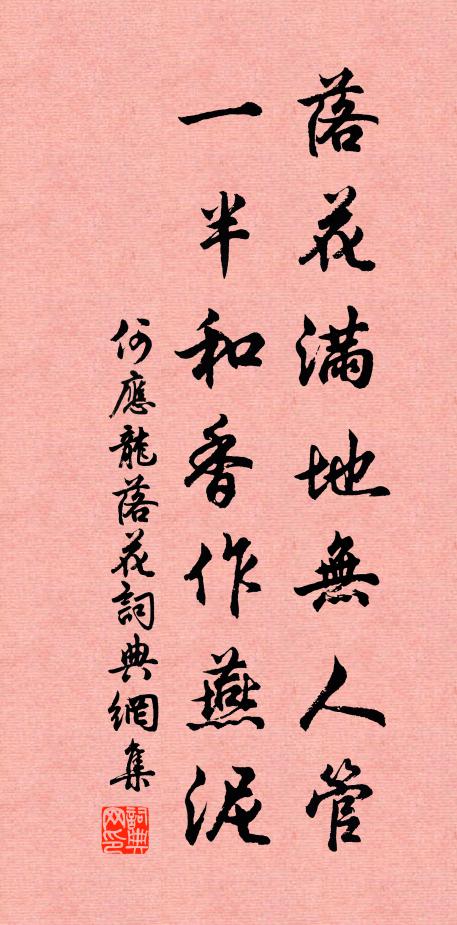 落花滿地無人管
一半和香作燕泥
何應龍落花詞典網集
詞典网印